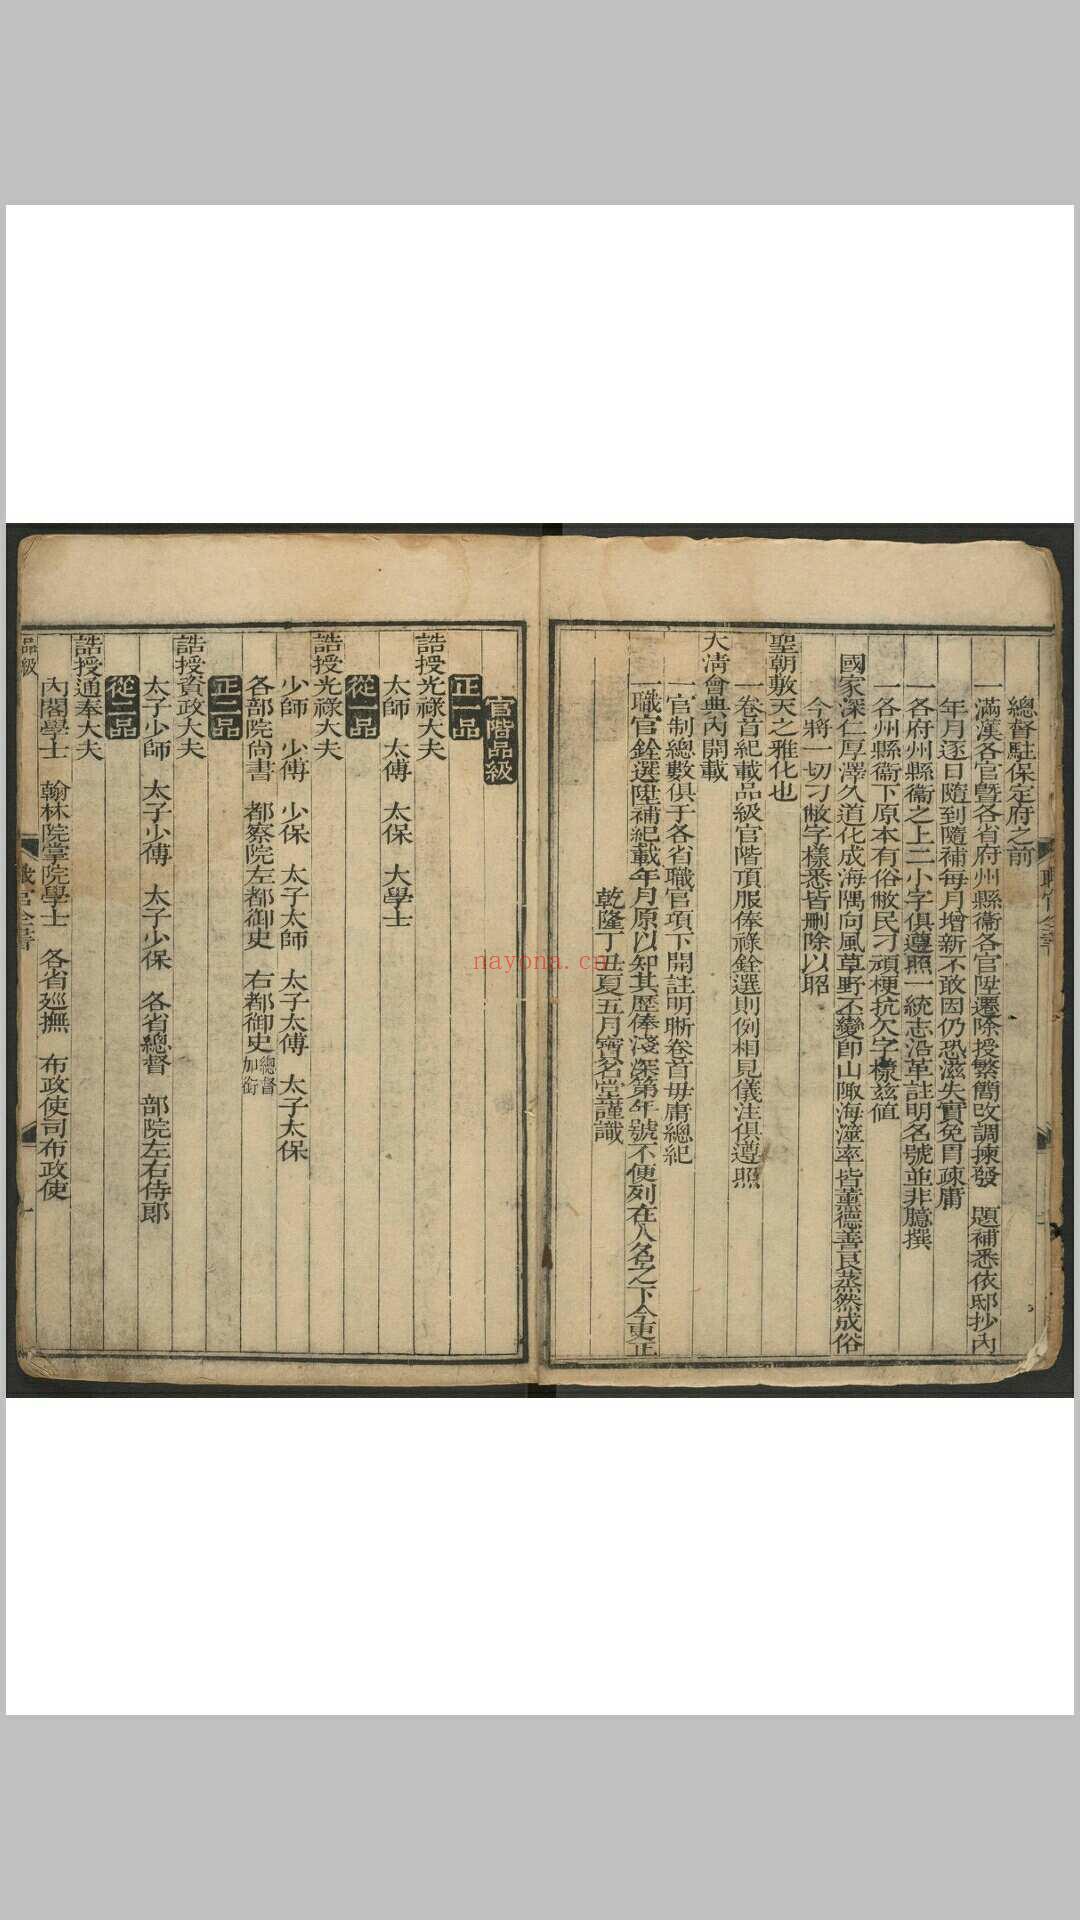 總督駐保定府之前
一滿漢各官曁各省府州縣衞各官陞遷除授繁簡改調揀發 題補悉依邸抄內
年月逐日隨到隨補每月增新不敢因仍恐滋失實免胃疎庸
一各府州縣衞之上二小字俱遵照一統志沿革註明名號並非臆撰
一各州縣衞下原本有俗敝民刁頑梗抗欠字樣兹值
國家深仁厚澤久道化成海隅向風草野丕變卽山陬海澨率皆薰德善良蒸然成俗
今將一切刁敝字樣悉皆刪除以昭
聖朝敷天之雅化也
一卷首紀載品級官階頂服俸祿銓選則例相見儀注俱遵照
大淸會典內開載
一官制總數俱于各省職官項下開註明晰卷首毋庸總紀
一職官銓選陞補紀載年月原以知其歷俸淺深第年號不便列在人名之下今更正
乾隆丁丑夏五月寶名堂謹識
官階品級
正一品
誥授光祿大夫
太師 太傅 太保 大學士
從一品
誥授光祿大夫
少師 少傅 少保 太子太師 太子太傅 太子太保
各部院尙書 都察院左都御史 右都御史總督加銜
正二品
誥授資政大夫
太子少師 太子少傅 太子少保 各省總督 部院左右侍郞
從二品
誥授通奉大夫
內閣學士 翰林院掌院學士 各省廵撫 布政使司布政使
品級
nayona.cn